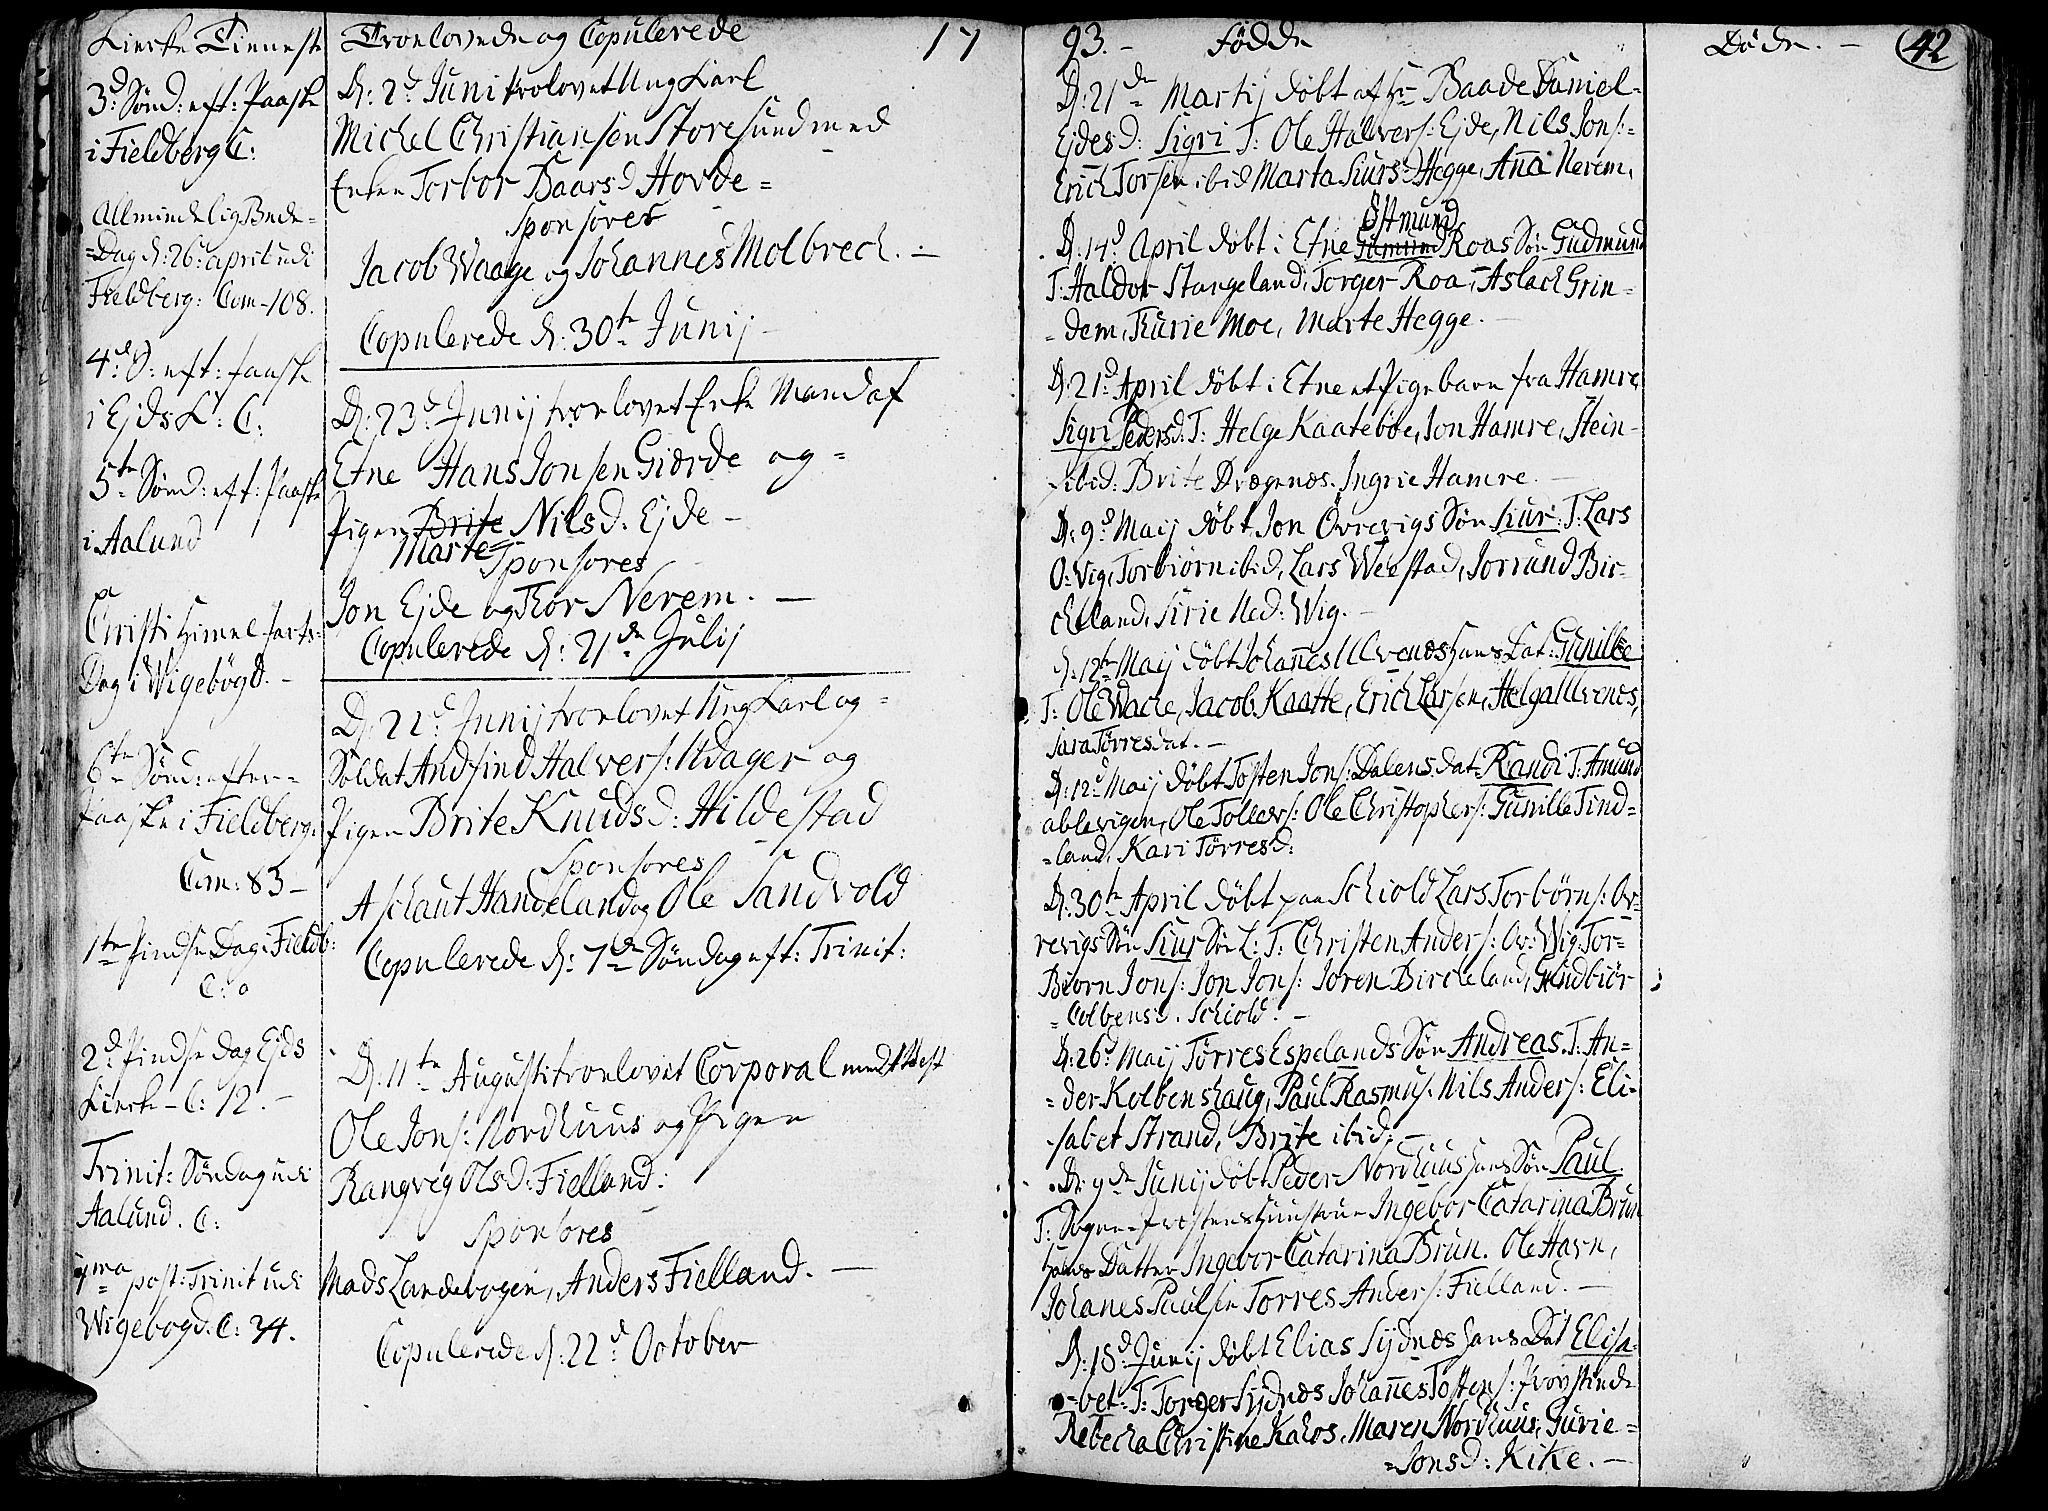 Kierke Tieneste
3d Sønd: eft: Paaske
i Fieldberg C:
Allmindelig Bede=
=Dag d: 26: april udi
Fieldberg: Com-108.
4d S: eft: Paaske
i Ejds K: C:
5te Sønd: eft: Paaske
i Aalund
Christi Himmelfarts-
Dag i Wigebögd. -
6te Sønd: efter-
Paaske i Fieldberg
Com: 83 -
1te Pindse Dag i Fieldb:
C: 0
2d Pindse dag Ejds
Kierke - C: 12. -
Trinit: Søndag udi
Aalund. C:
post: Trinit udi
Wigebogd. C: 34.
Trovlovede og Copulerede 17
D: 2d Juni trolovet Ung Karl
Michel Christiansen Storesund med
Enken Torbor Baarsd Hovde =
Sponsores
Jacob Waage og Johannes Molbrech. -
Copulerede d: 30te Junij
D: 23d Junij trovlovet Enke Mand af
Etne Hans Jonsen Giærde og =
Pigen Brite Nilsd. Ejde -
Marte
Sponsores
Jon Ejde og Thor Nerem. -
Copulerede d: 21de Julij
D: 22d Junij trovlovet Ung Karl og =
Soldat Andfind Halvers: Udager og
Pigen Brite Knudsd: Hildestad
Sponsores
Aschaut Handeland og Ole Sandvold
Copulerede d: 7de Søndag eft: Trinit:
D: 11te Augusti trovlovet Corporal
Ole Jons: Nordhuus og Pigen
Rangveg Olsd: Fielland:
Sponsores
Mads Landebogen, Anders Fielland. -
Copulerede d: 22d October
93. - Födde
D: 21de Martij döbt af Hr Baade Daniel-
Ejdes D: Sigri T: Ole Halvers: Ejde, Nils Jons:-
Erich Torsen ibid Marta Siursd: Hegge, Ana Nerem,
Østmund
D: 14d April döbt i Etne Roas Sön Gudmund
T: Haldor Stangeland, Torger Roa, Aslach Grin-
-dem, Thurie Moe, Marte Hegge. -
D: 21d April döbt i Etne et Pigebarn fra Hamre
Sigri Pedersd: T: Helge Kaatebøe, Jon Hamre, Stein-
ibid: Brite Drægenæs. Ingrie Hamre. -
D: 9d Maij döbt Jon Övrevigs Sön Siur: T: Lars
O: Vig, Torbiörn ibid, Lars Weestad, Jorrund Bir-
cheland, Sirie Ned: Wig. -
d: 12te Maij döbt Johannes Ulvenæs hans Dat: Gunille
T: Ole Wacre, Jacob Kaatte, Erich Larsen, Helga Ulvenes,
Sara Törresdat. -
D: 12d Maij döbt Tosten Jons: Dalens dat: Randi T: Amund
ablevigen, Ole Tollevs: Ole Christophers: Gunille Tind=
=land, Kari Törresd:
D: 30te April döbt paa Schiold Lars Torbörns: Ov-
revigs Sön Siur T: Christen Anders: Ov: Wig. Tor-
Biorn Jons: Jon Jons: Joren Bircheland, Gundbiör
=Colbensd. Schiold. -
D: 26d Maij Törres Espelands Sön Andreas. T: An-
=der Kolbenshaug, Paul Rasmus: Nils Anders: Eli-
-sabet Strand, Brite ibid: -
D: 9de Junij döbt Peder Nordhuus hans Sön Paul.
T: Sogne-Prestens Hustrue Ingebor Catarina Brun
hans Datter Ingebor Catarina Brun. Ole Havn,
Johanes Paulsen Torres Anders: Fielland. -
D: 18d: Junij döbt Elias Sydnæs hans Dat Elisa-
-bet: T: Torger Sydnæs Johannes Tostens:
Rebecha Christine Kahos, Maren Nordhuus, Gurie =
=Jonsd: Kike. -
Döde. - 42